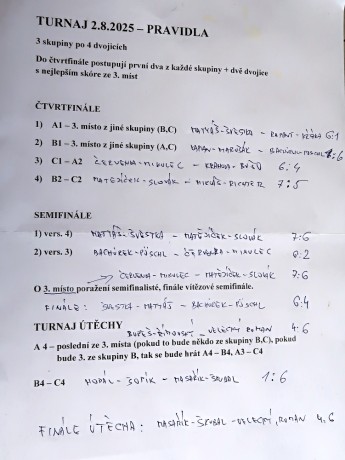 TURNAJ 2.8.2025 – PRAVIDLA
3 skupiny po 4 dvojicích
Do čtvrtfinále postupují první dva z každé skupiny + dvě dvojice
s nejlepším skóre ze 3. míst
ČTVRTFINÁLE
1) A1 – 3. místo z jiné skupiny (B,C) MATYÁŠ-ŠVESTKA – ROMAN 6:1
2) B1 – 3. místo z jiné skupiny (A,C) BACHŮREK-PŮSCHL :6
3) C1 – A2 ČERVENKA-MIKULEC – 6:4
4) B2 – C2 MATĚJÍČEK-SLOVÁK – RICHTER 7:5
SEMIFINÁLE
1) vers. 4) MATYÁŠ-ŠVESTKA – MATĚJÍČEK-SLOVÁK 7:6
2) vers. 3) BACHŮREK-PŮSCHL – ČERVENKA-MIKULEC :2
ČERVENKA-MIKULEC – MATĚJÍČEK-SLOVÁK 7:6
O 3. místo poražení semifinalisté, finále vítězové semifinále.
FINÁLE: ŠVESTKA-MATYÁŠ – BACHŮREK-PŮSCHL 6:4
TURNAJ ÚTĚCHY – VELECKÝ ROMAN 4:6
A 4 – poslední ze 3. místa (pokud to bude někdo ze skupiny B,C), pokud
bude 3. ze skupiny B, tak se bude hrát A4 – B4, A3 – C4
B4 – C4 – MASAŘÍK-ŠKUBAL 1:6
FINÁLE ÚTĚCHA: MASAŘÍK-ŠKUBAL-VELECKÝ, ROMAN 4:6